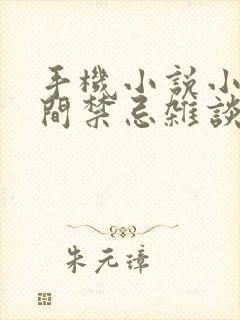 手機小說小
間禁忌雜談
朱元璋